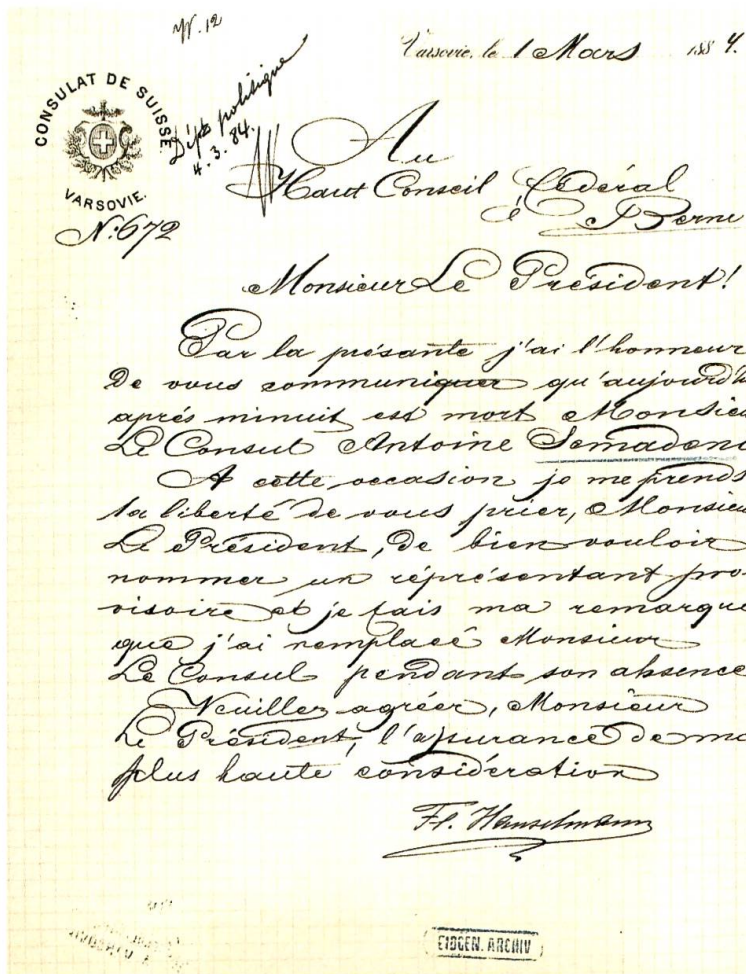 N. 12
Varsovie, le 1 Mars 1884.
CONSULAT DE SUISSE
VARSOVIE.
Dépt politique
4. 3. 84.
N: 672
Au
Haut Conseil Fédéral
à Berne
Monsieur Le Président!
Par la présante j'ai l'honneur
De vous communiquer qu'aujourd'h
aprés minuit est mort Monsieu
Le Consul Antoine Semadeni
A cette occasion je me prends
la liberté de vous prier, Monsieu
Le Président, De bien vouloir
nommer un réprésentant pro-
visoire et je fais ma remarque
que j'ai remplacé Monsieur
Le Consul pendant son absence
Veuillez agréer, Monsieur
Le Président, l'assurance de ma
plus haute considération
Fl. Hanselmann
EIDGEN. ARCHIV